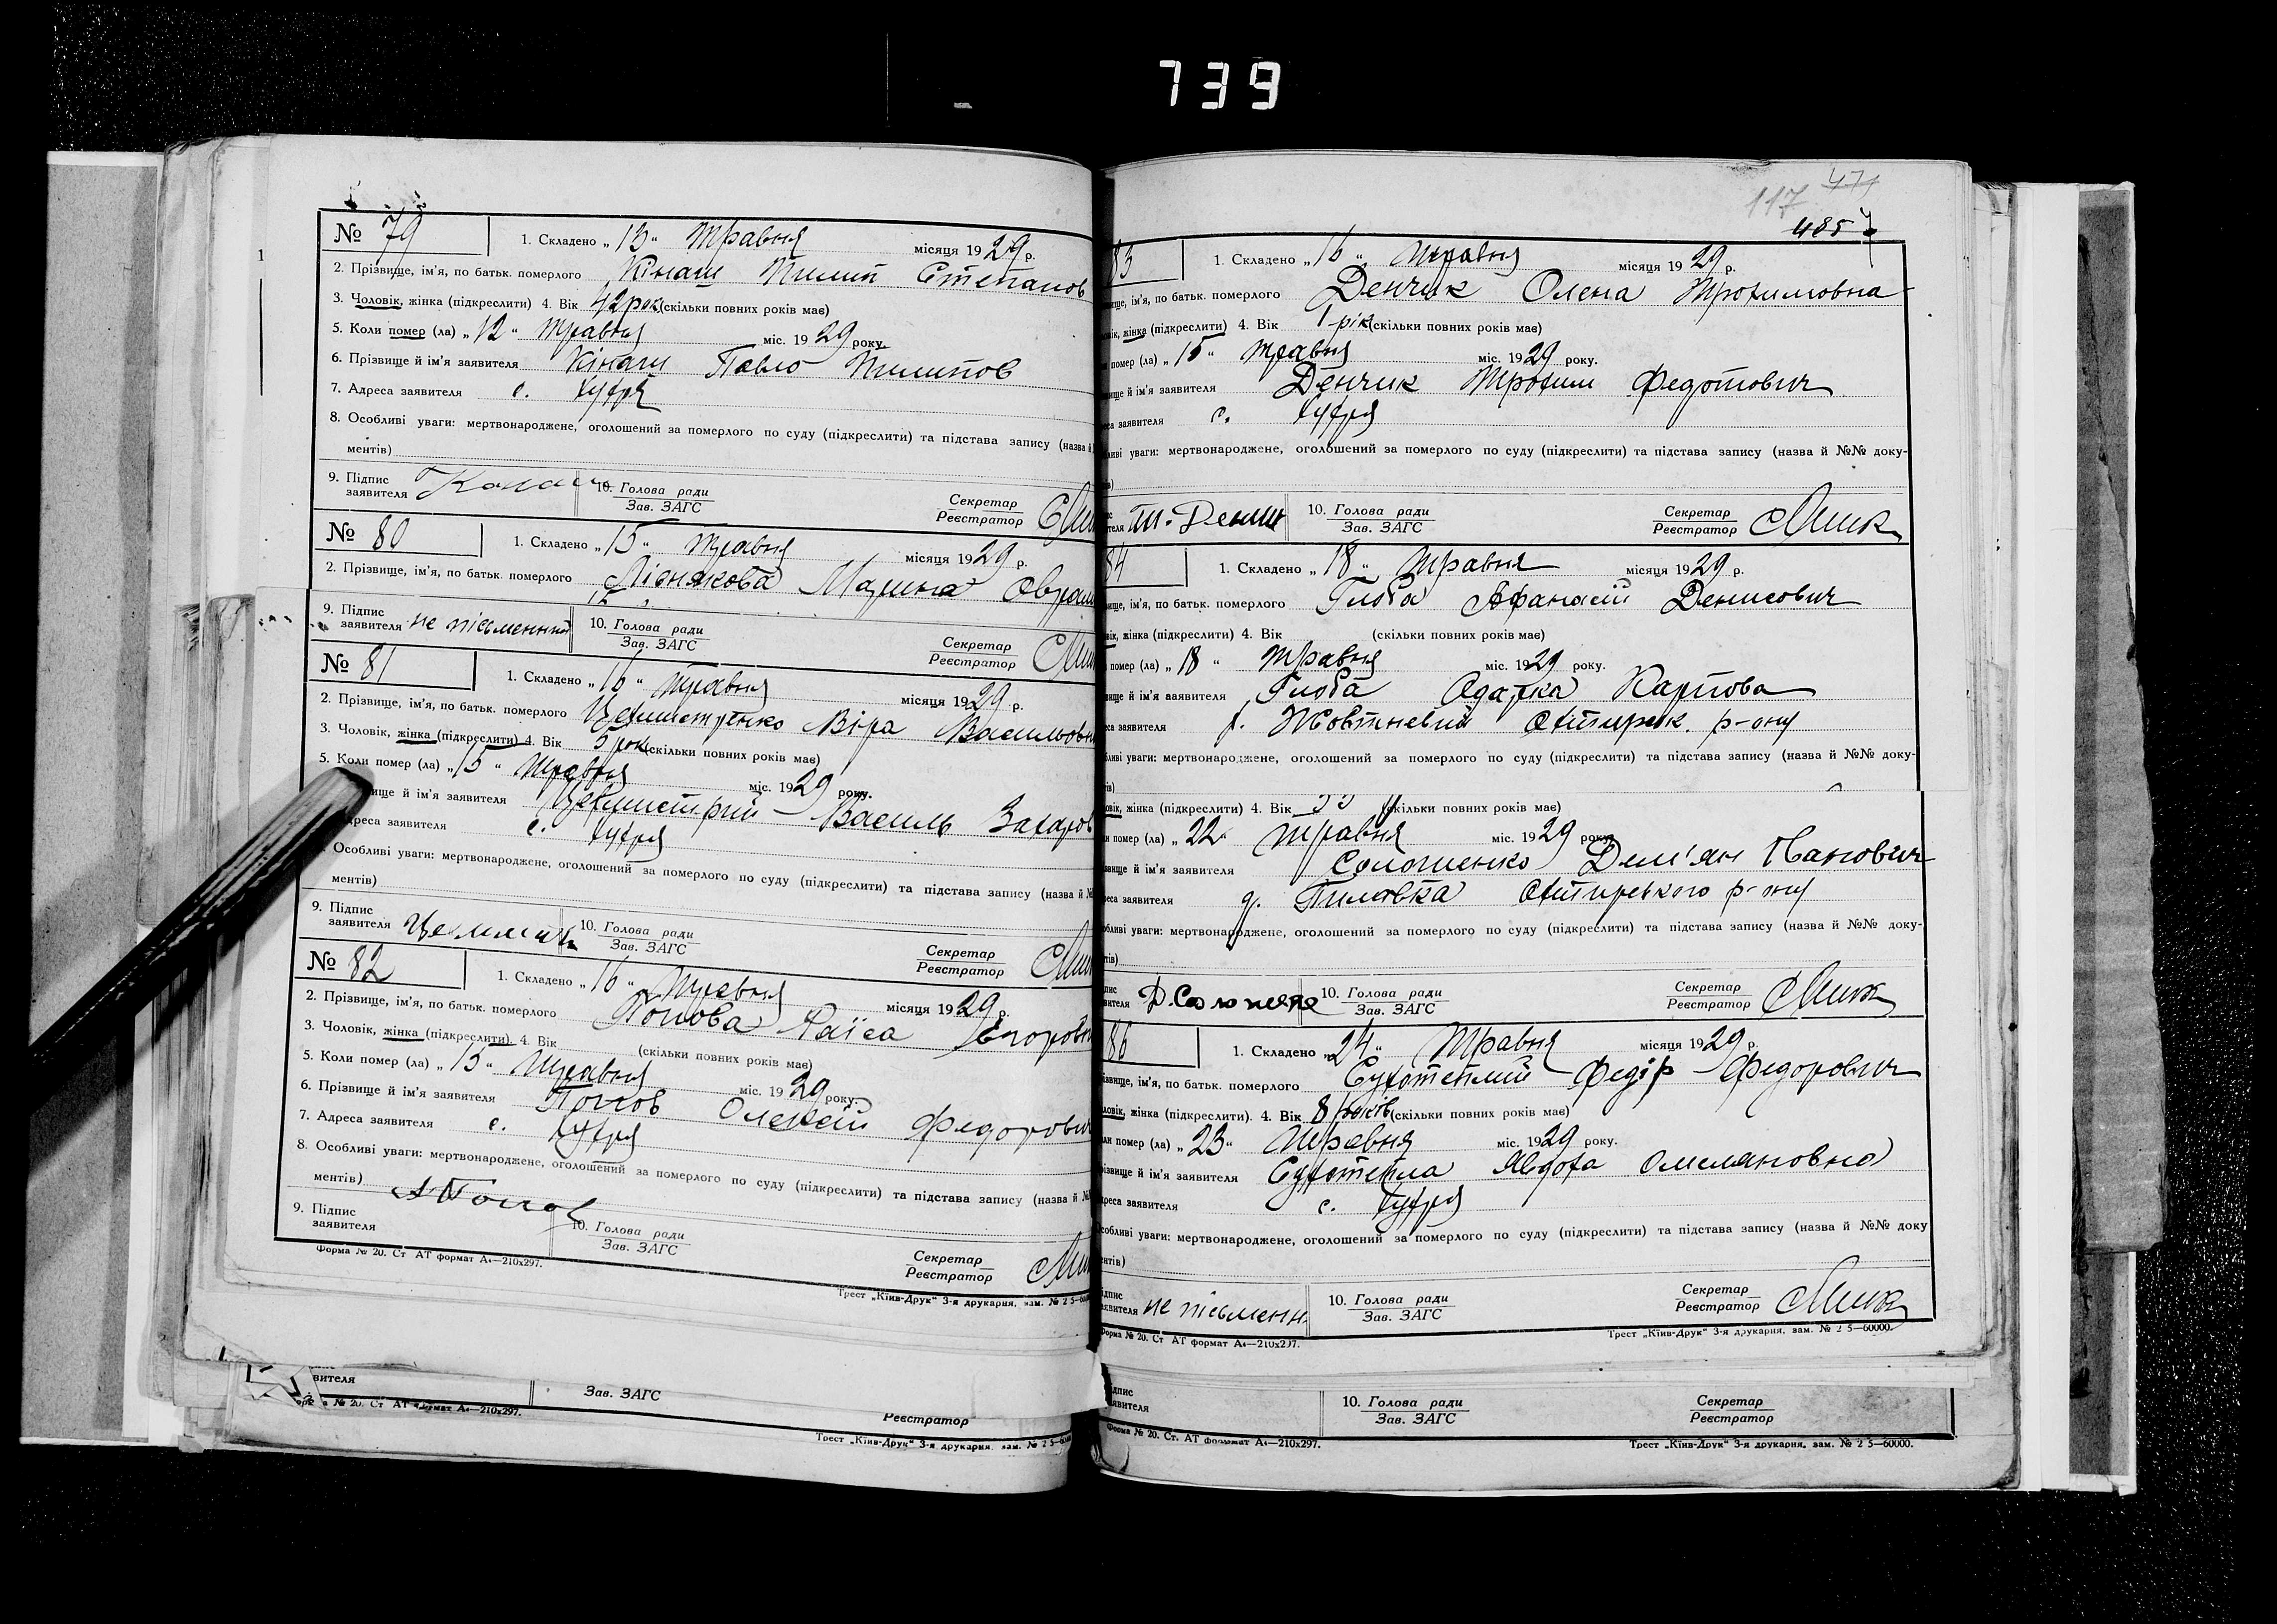 739
№ 79
1. Складено „13“ Травня місяця 1929 р.
2. Прізвище, ім'я, по батьк. померлого Кінаш Пилип Степанов
3. Чоловік, жінка (підкреслити) 4. Вік 42 рок (скільки повних років має)
5. Коли помер (ла) „12“ Травня міс. 1929 року.
6. Прізвище й ім'я заявителя Кінаш Павло Пилипов
7. Адреса заявителя с. Хухря
8. Особливі уваги: мертвонароджене, оголошений за померлого по суду (підкреслити) та підстава запису (назва й
ментів)
9. Підпис заявителя
10. Голова ради Зав. ЗАГС
Секретар Реєстратор
№ 80
1. Складено „15“ Травня місяця 1929 р.
2. Прізвище, ім'я, по батьк. померлого Ліснякова Мар
9. Підпис заявителя не письменний
10. Голова ради Зав. ЗАГС
Секретар Реєстратор
№ 81
1. Складено „16“ Травня місяця 1929 р.
2. Прізвище, ім'я, по батьк. померлого Віра Васильовн
3. Чоловік, жінка (підкреслити) 4. Вік 5 рок (скільки повних років має)
5. Коли помер (ла) „15“ Травня міс. 1929 року.
ище й ім'я заявителя Василь Захаров
дреса заявителя с. Хухря
Особливі уваги: мертвонароджене, оголошений за померлого по суду (підкреслити) та підстава запису (назва й №
ментів)
9. Підпис заявителя
10. Голова ради Зав. ЗАГС
Секретар Реєстратор
№ 82
1. Складено „16“ Травня місяця 1929 р.
2. Прізвище, ім'я, по батьк. померлого Попова Раїса Єгоровн
3. Чоловік, жінка (підкреслити). 4. Вік (скільки повних років має)
5. Коли помер (ла) „15“ Травня міс. 1929 року.
6. Прізвище й ім'я заявителя Попов Олексій Федорович
7. Адреса заявителя с. Хухря
8. Особливі уваги: мертвонароджене, оголошений за померлого по суду (підкреслити) та підстава запису (назва й №
ментів)
9. Підпис заявителя А Попов
10. Голова ради Зав. ЗАГС
Секретар Реєстратор
Форма № 20. Ст АТ формат А4—210х297.
Трест „Київ-Друк“ 3-я друкарня, зам. № 2 5—60
вителя
Зав. ЗАГС
Реєстратор
№ 20. Ст АТ формат А4—210х297.
Трест „Київ-Друк“ 3-я друкарня, зам. № 2 5—60
117 471
485 7
83
1. Складено „16“ Травня місяця 1929 р.
вище, ім'я, по батьк. померлого Денчик Олена Трохимовна
вік, жінка (підкреслити) 4. Вік 1 рік (скільки повних років має)
помер (ла) „15“ Травня міс. 1929 року.
вище й ім'я заявителя Денчик Трохим Федотович
еса заявителя с. Хухря
ливі уваги: мертвонароджене, оголошений за померлого по суду (підкреслити) та підстава запису (назва й №№ доку-
ів)
10. Голова ради Зав. ЗАГС
Секретар Реєстратор
84
1. Складено „18“ Травня місяця 1929 р.
вище, ім'я, по батьк. померлого Глоба Афанасій Денисович
вік, жінка (підкреслити) 4. Вік (скільки повних років має)
помер (ла) „18“ Травня міс. 1929 року.
вище й ім'я заявителя Глоба Одарка Карпова
еса заявителя Жовтневий Охтирськ. р-ону
бливі уваги: мертвонароджене, оголошений за померлого по суду (підкреслити) та підстава запису (назва й №№ доку-
ів)
овік, жінка (підкреслити) 4. Вік (скільки повних років має)
и помер (ла) „22“ Травня міс. 1929 року.
звище й ім'я заявителя Солошенко Дем'ян Панович
еса заявителя Охтирського р-ону
обливі уваги: мертвонароджене, оголошений за померлого по суду (підкреслити) та підстава запису (назва й №№ доку-
тів)
10. Голова ради Зав. ЗАГС
Секретар Реєстратор
86
1. Складено „24“ Травня місяця 1929 р.
ізвище, ім'я, по батьк. померлого Сухотеплий Федір Федорович
ловік, жінка (підкреслити). 4. Вік 8 років (скільки повних років має)
ли помер (ла) „23“ Травня міс. 1929 року.
ізвище й ім'я заявителя Сухотепла Явдоха Омеляновна
дреса заявителя с. Хухря
Особливі уваги: мертвонароджене, оголошений за померлого по суду (підкреслити) та підстава запису (назва й №№ доку
ентів)
ідпис аявителя не письменн.
10. Голова ради Зав. ЗАГС
Секретар Реєстратор
Форма № 20. Ст АТ формат А4—210х297.
Трест „Київ-Друк“ 3-я друкарня, зам. № 2 5—60000.
ідпис аявителя
10. Голова ради Зав. ЗАГС
Секретар Реєстратор
Форма № 20. Ст. АТ формат А4—210х297.
Трест „Київ-Друк“ 3-я друкарня, зам. № 2 5—60000.